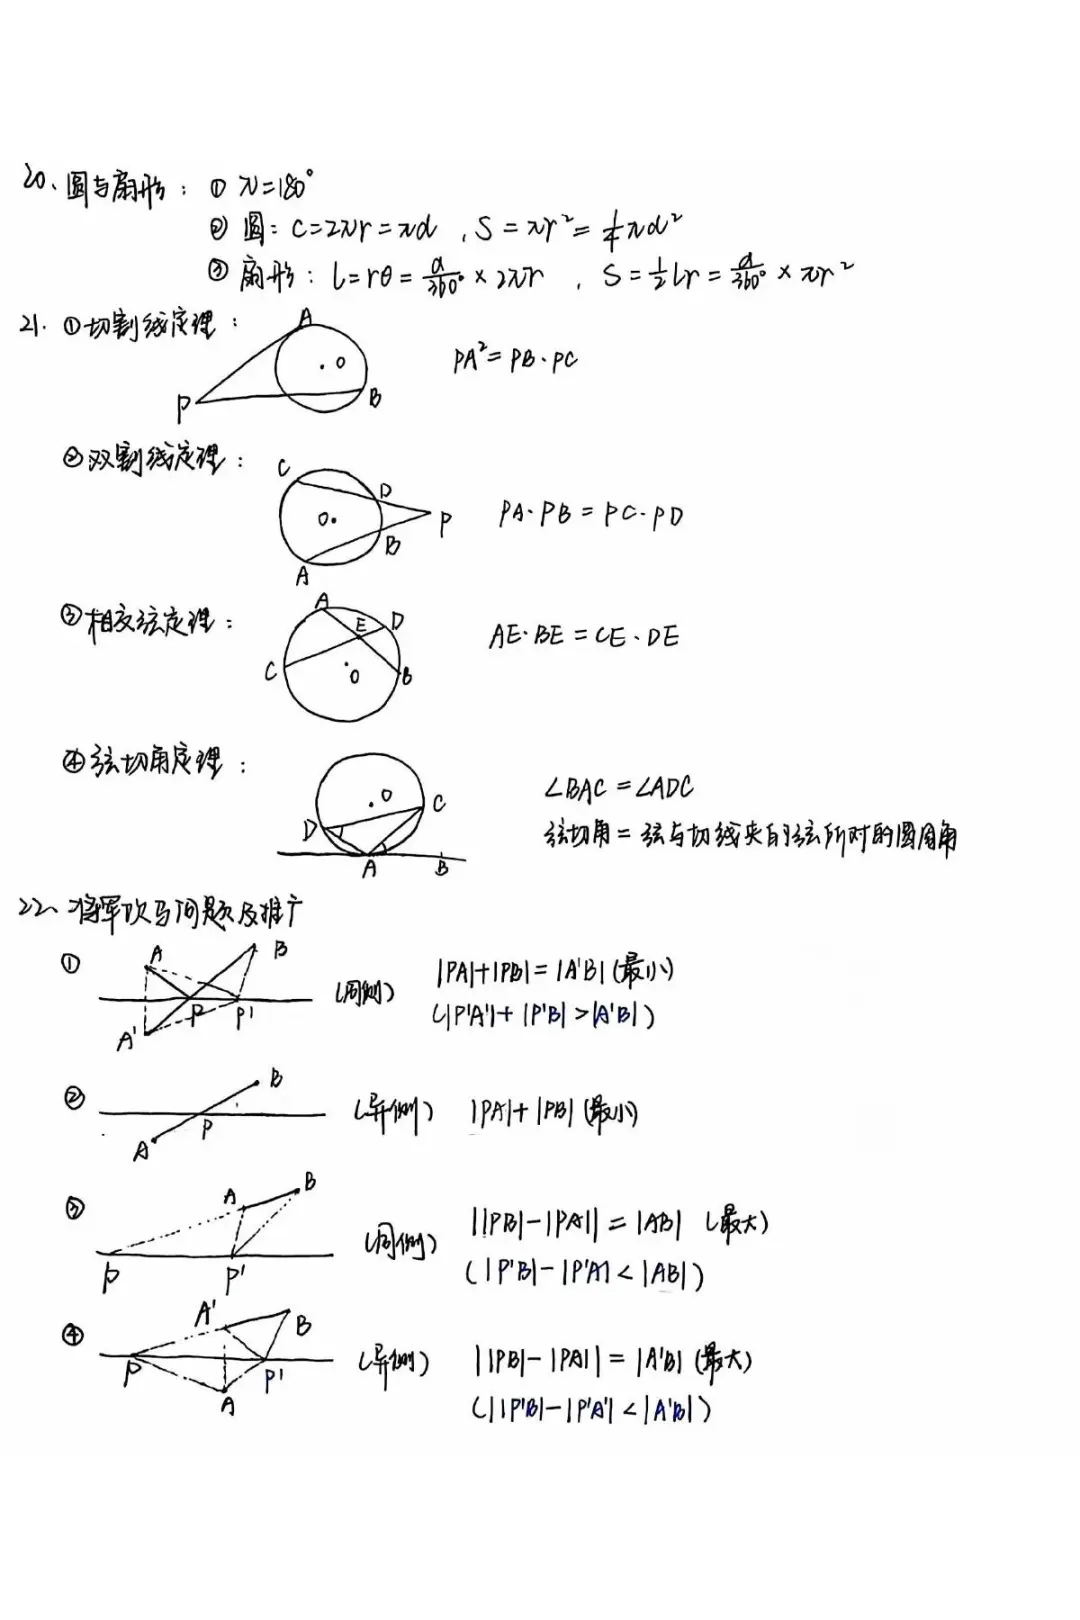 20、圆与扇形：① π=180°
② 圆：C=2πr=πd，S=πr²=¼πd²
③ 扇形：l=rθ=α/360°×2πr，S=½lr=α/360°×πr²
21. ①切割线定理：
A
O
P
B
PA²=PB·PC
②双割线定理：
C
D
O
P
B
A
PA·PB=PC·PD
③相交弦定理：
A
E
D
C
O
B
AE·BE=CE·DE
④弦切角定理：
O
C
D
A
B
∠BAC=∠ADC
弦切角=弦与切线夹的弦所对的圆周角
22、将军饮马问题及推广
①
A
B
P
P'
A'
(同侧)
|PA|+|PB|=|A'B|(最小)
(|P'A'|+|P'B|>|A'B|)
②
B
P
A
(异侧)
|PA|+|PB|(最小)
③
A
B
P
P'
(同侧)
||PB|-|PA||=|AB| (最大)
(|P'B|-|P'A|<|AB|)
④
A'
B
P
P'
A
(异侧)
||PB|-|PA||=|A'B|(最大)
(||P'B|-|P'A'|<|A'B|)